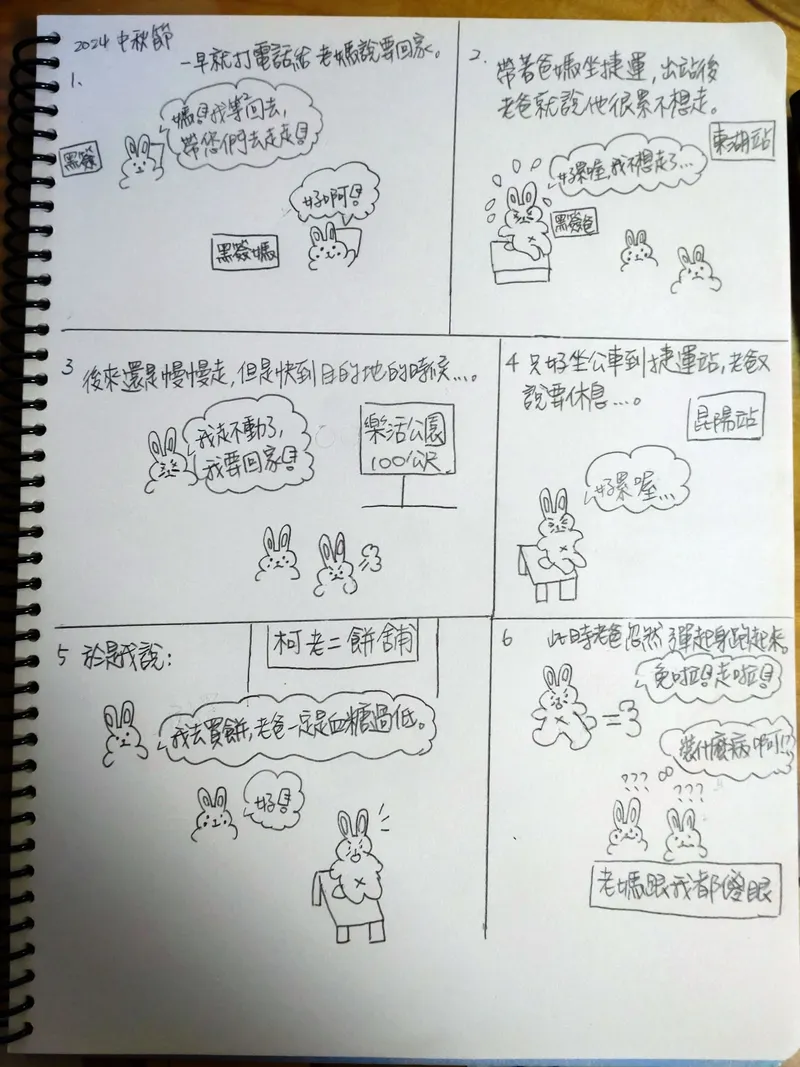 2024 中秋節
一早就打電話給老媽說要回家。
1、
媽!我等等回去,
帶您們去走走!
黑簽
好啊!
黑簽媽
2、帶著爸媽坐捷運,出站後
老爸就說他很累不想走。
東湖站
好累喔,我不想走了...
黑簽爸
3 後來還是慢慢走,但是快到目的地的時候....。
我走不動了,
我要回家!
樂活公園
100公尺
4 只好坐公車到捷運站,老爸又
說要休息....。
昆陽站
好累喔...
5 於是我說:
柯老二餅舖
我去買餅,老爸一定是血糖過低。
好!
6 此時老爸忽然彈起身跑起來。
免啦!走啦!
裝什麼病啊!?
??? ???
老媽跟我都傻眼